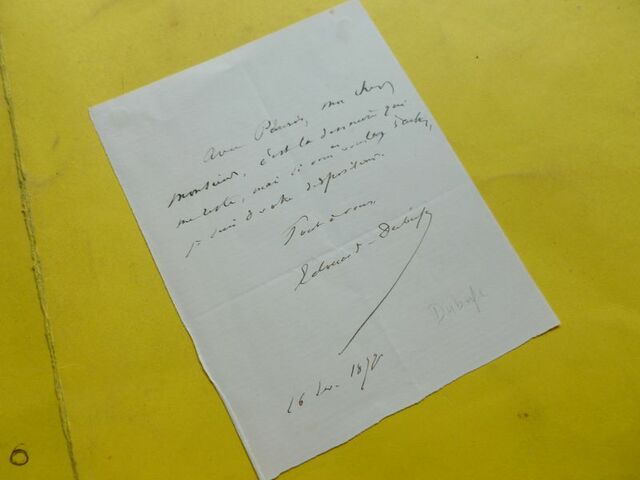 Avec Plaisir, mon cher
Monsieur, c'est la dernière qui
me reste, mais si vous voulez
je suis à votre disposition.
Tout à vous
Edouard Dubufe
Dubufe
16 1878